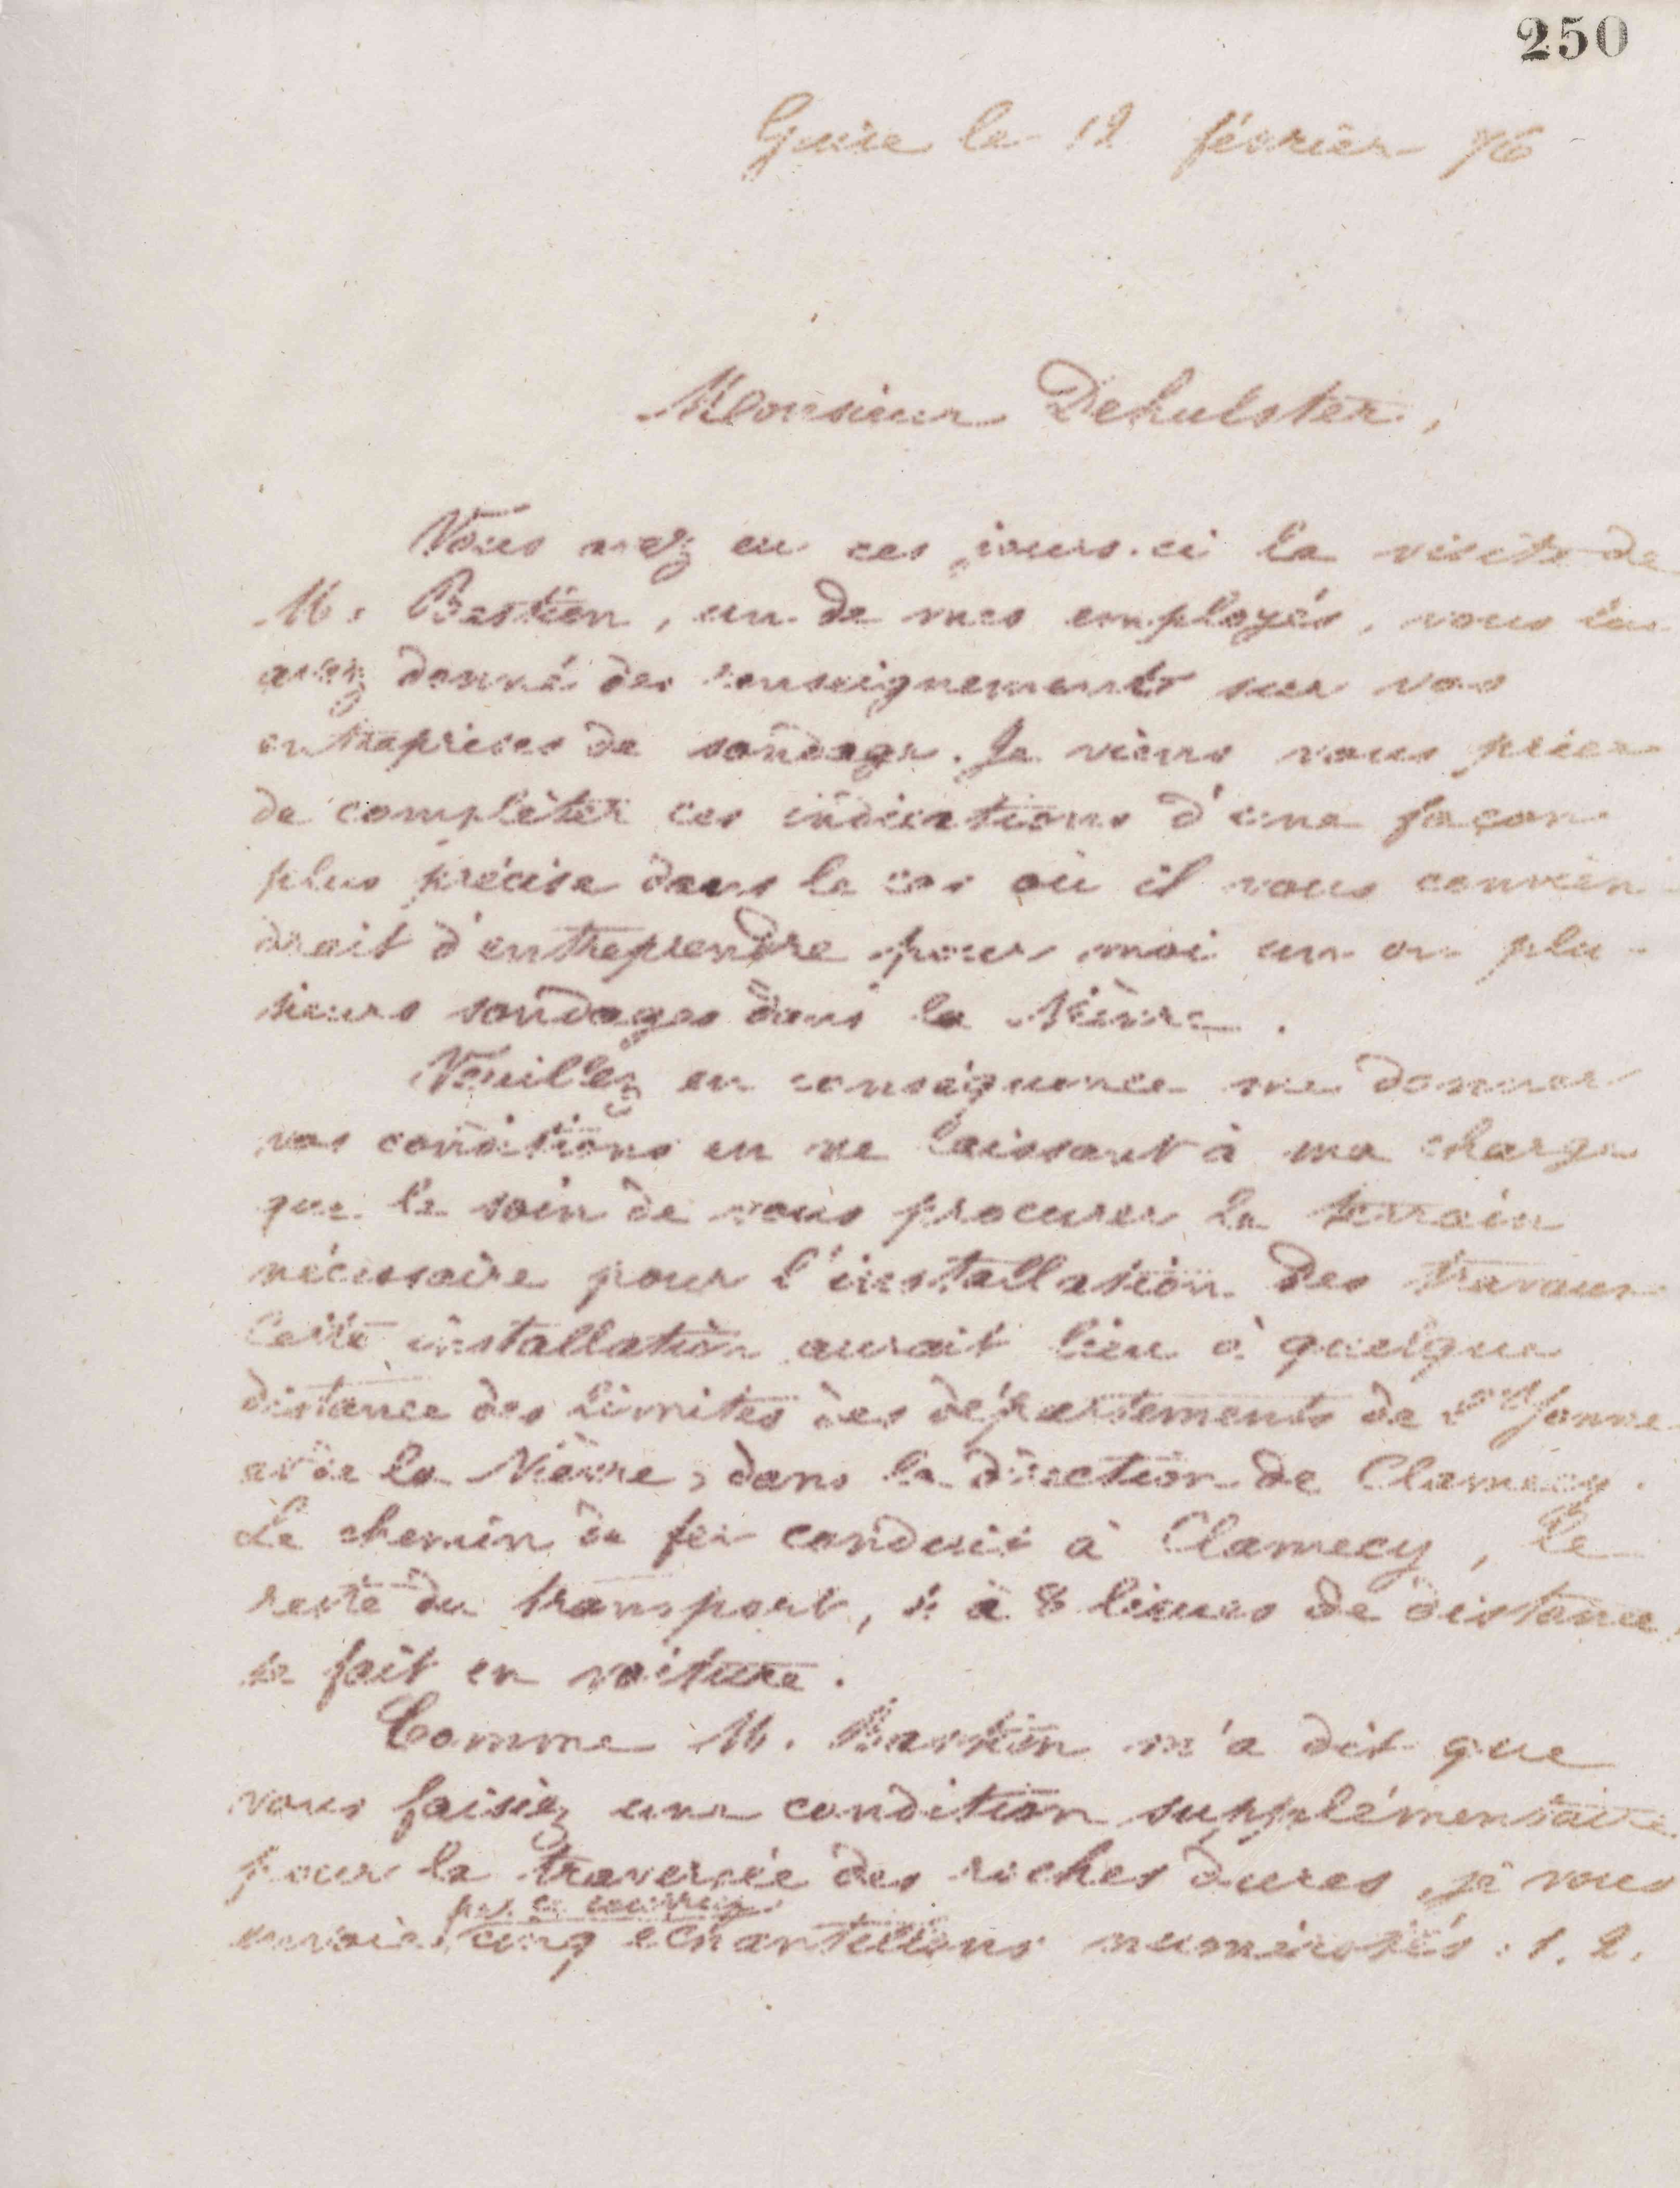 250
Guise le 12 février 76
Monsieur Dehulster,
Vous avez eu ces jours-ci la visite de
M. Bastien, un de mes employés, vous lui
avez donné des renseignements sur vos
entreprises de sondage. Je viens vous prier
de compléter ces indications d'une façon
plus précise dans le cas où il vous convien-
drait d'entreprendre pour moi un ou plu-
sieurs sondages dans la Nièvre.
Veuillez en conséquence me donner
vos conditions en ne laissant à ma charge
que le soin de vous procurer le terrain
nécessaire pour l'installation des travaux
Cette installation aurait lieu à quelque
distance des limites des départements de l'Yonne
et de la Nièvre, dans la direction de Clamecy.
Le chemin de fer conduit à Clamecy, le
reste du transport, à 8 lieues de distance,
se fait en voiture.
Comme M. Bastien m'a dit que
vous faisiez une condition supplémentaire
pour la traversée des roches dures, je vous
par ce courrier
envoie cinq échantillons numérotés : 1. 2.